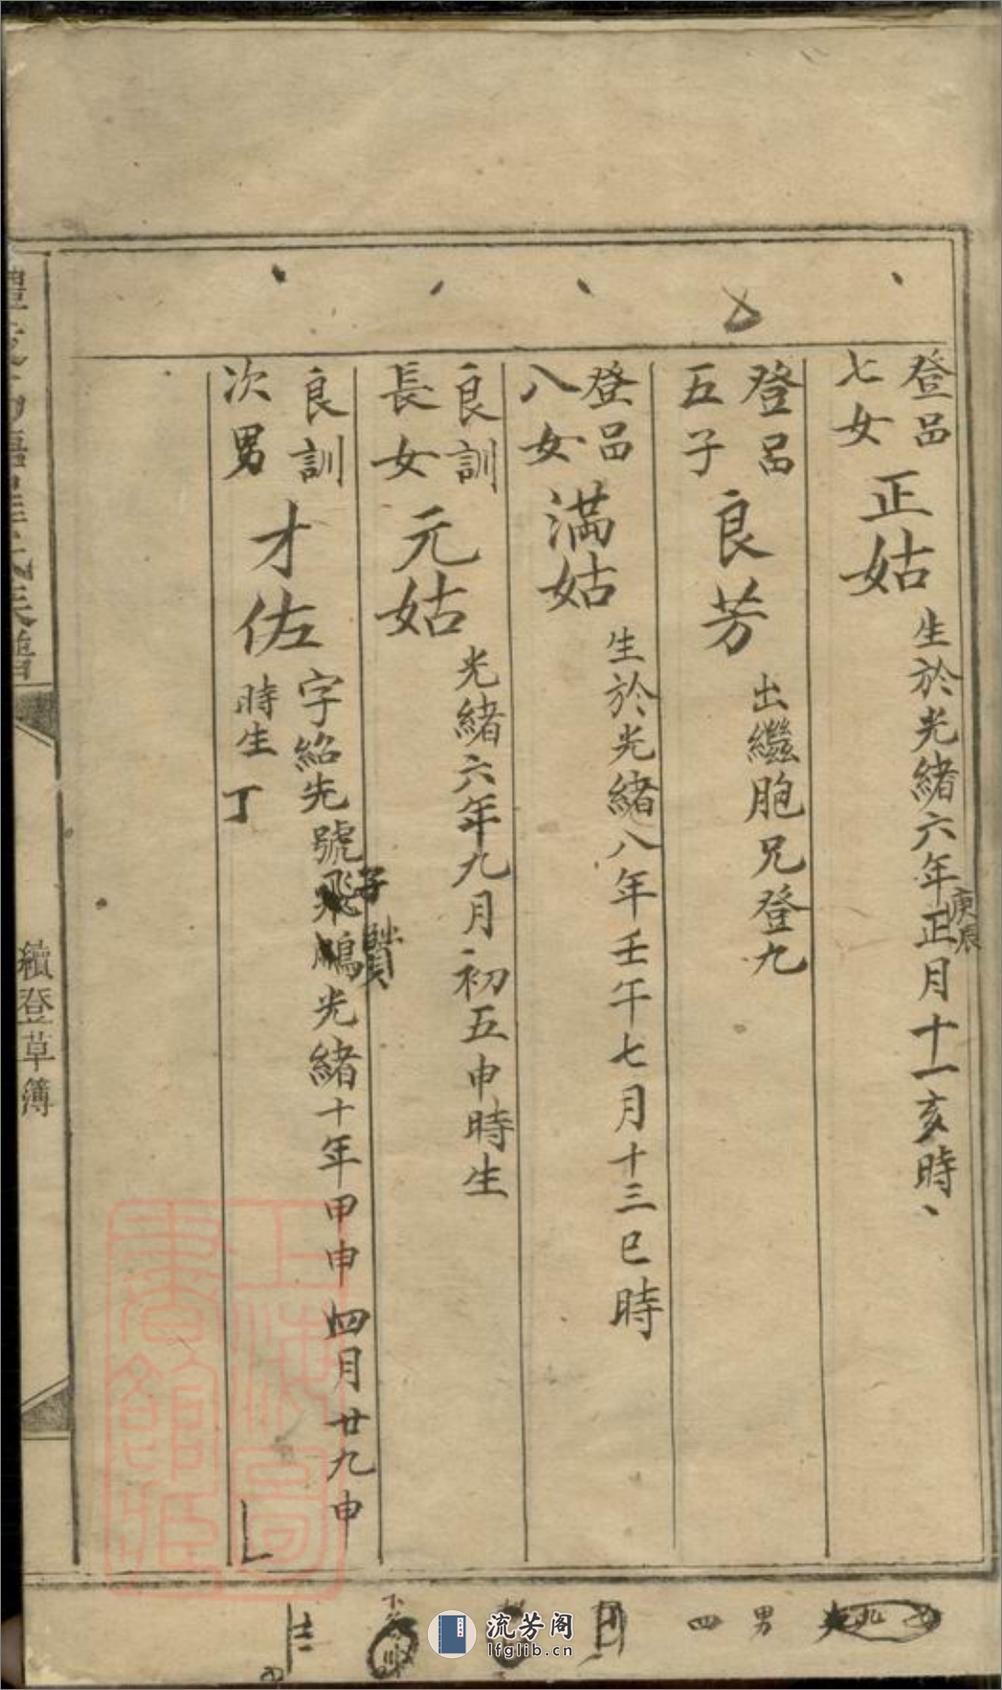 登品
七女
正姑
生於光緒六年正月十一亥時、
庚辰
登品
五子
良芳
出繼胞兄登九
登品
八女
滿姑
生於光緒八年壬午七月十三巳時
良訓
長女
元姑
光緒六年九月初五申時生
良訓
次男
才佐
字紹先號飛鵬光緒十年甲申四月廿九申
時生 丁
族譜
續登草簿
男
四
上海圖書館藏
流芳阁
lfglib.cn